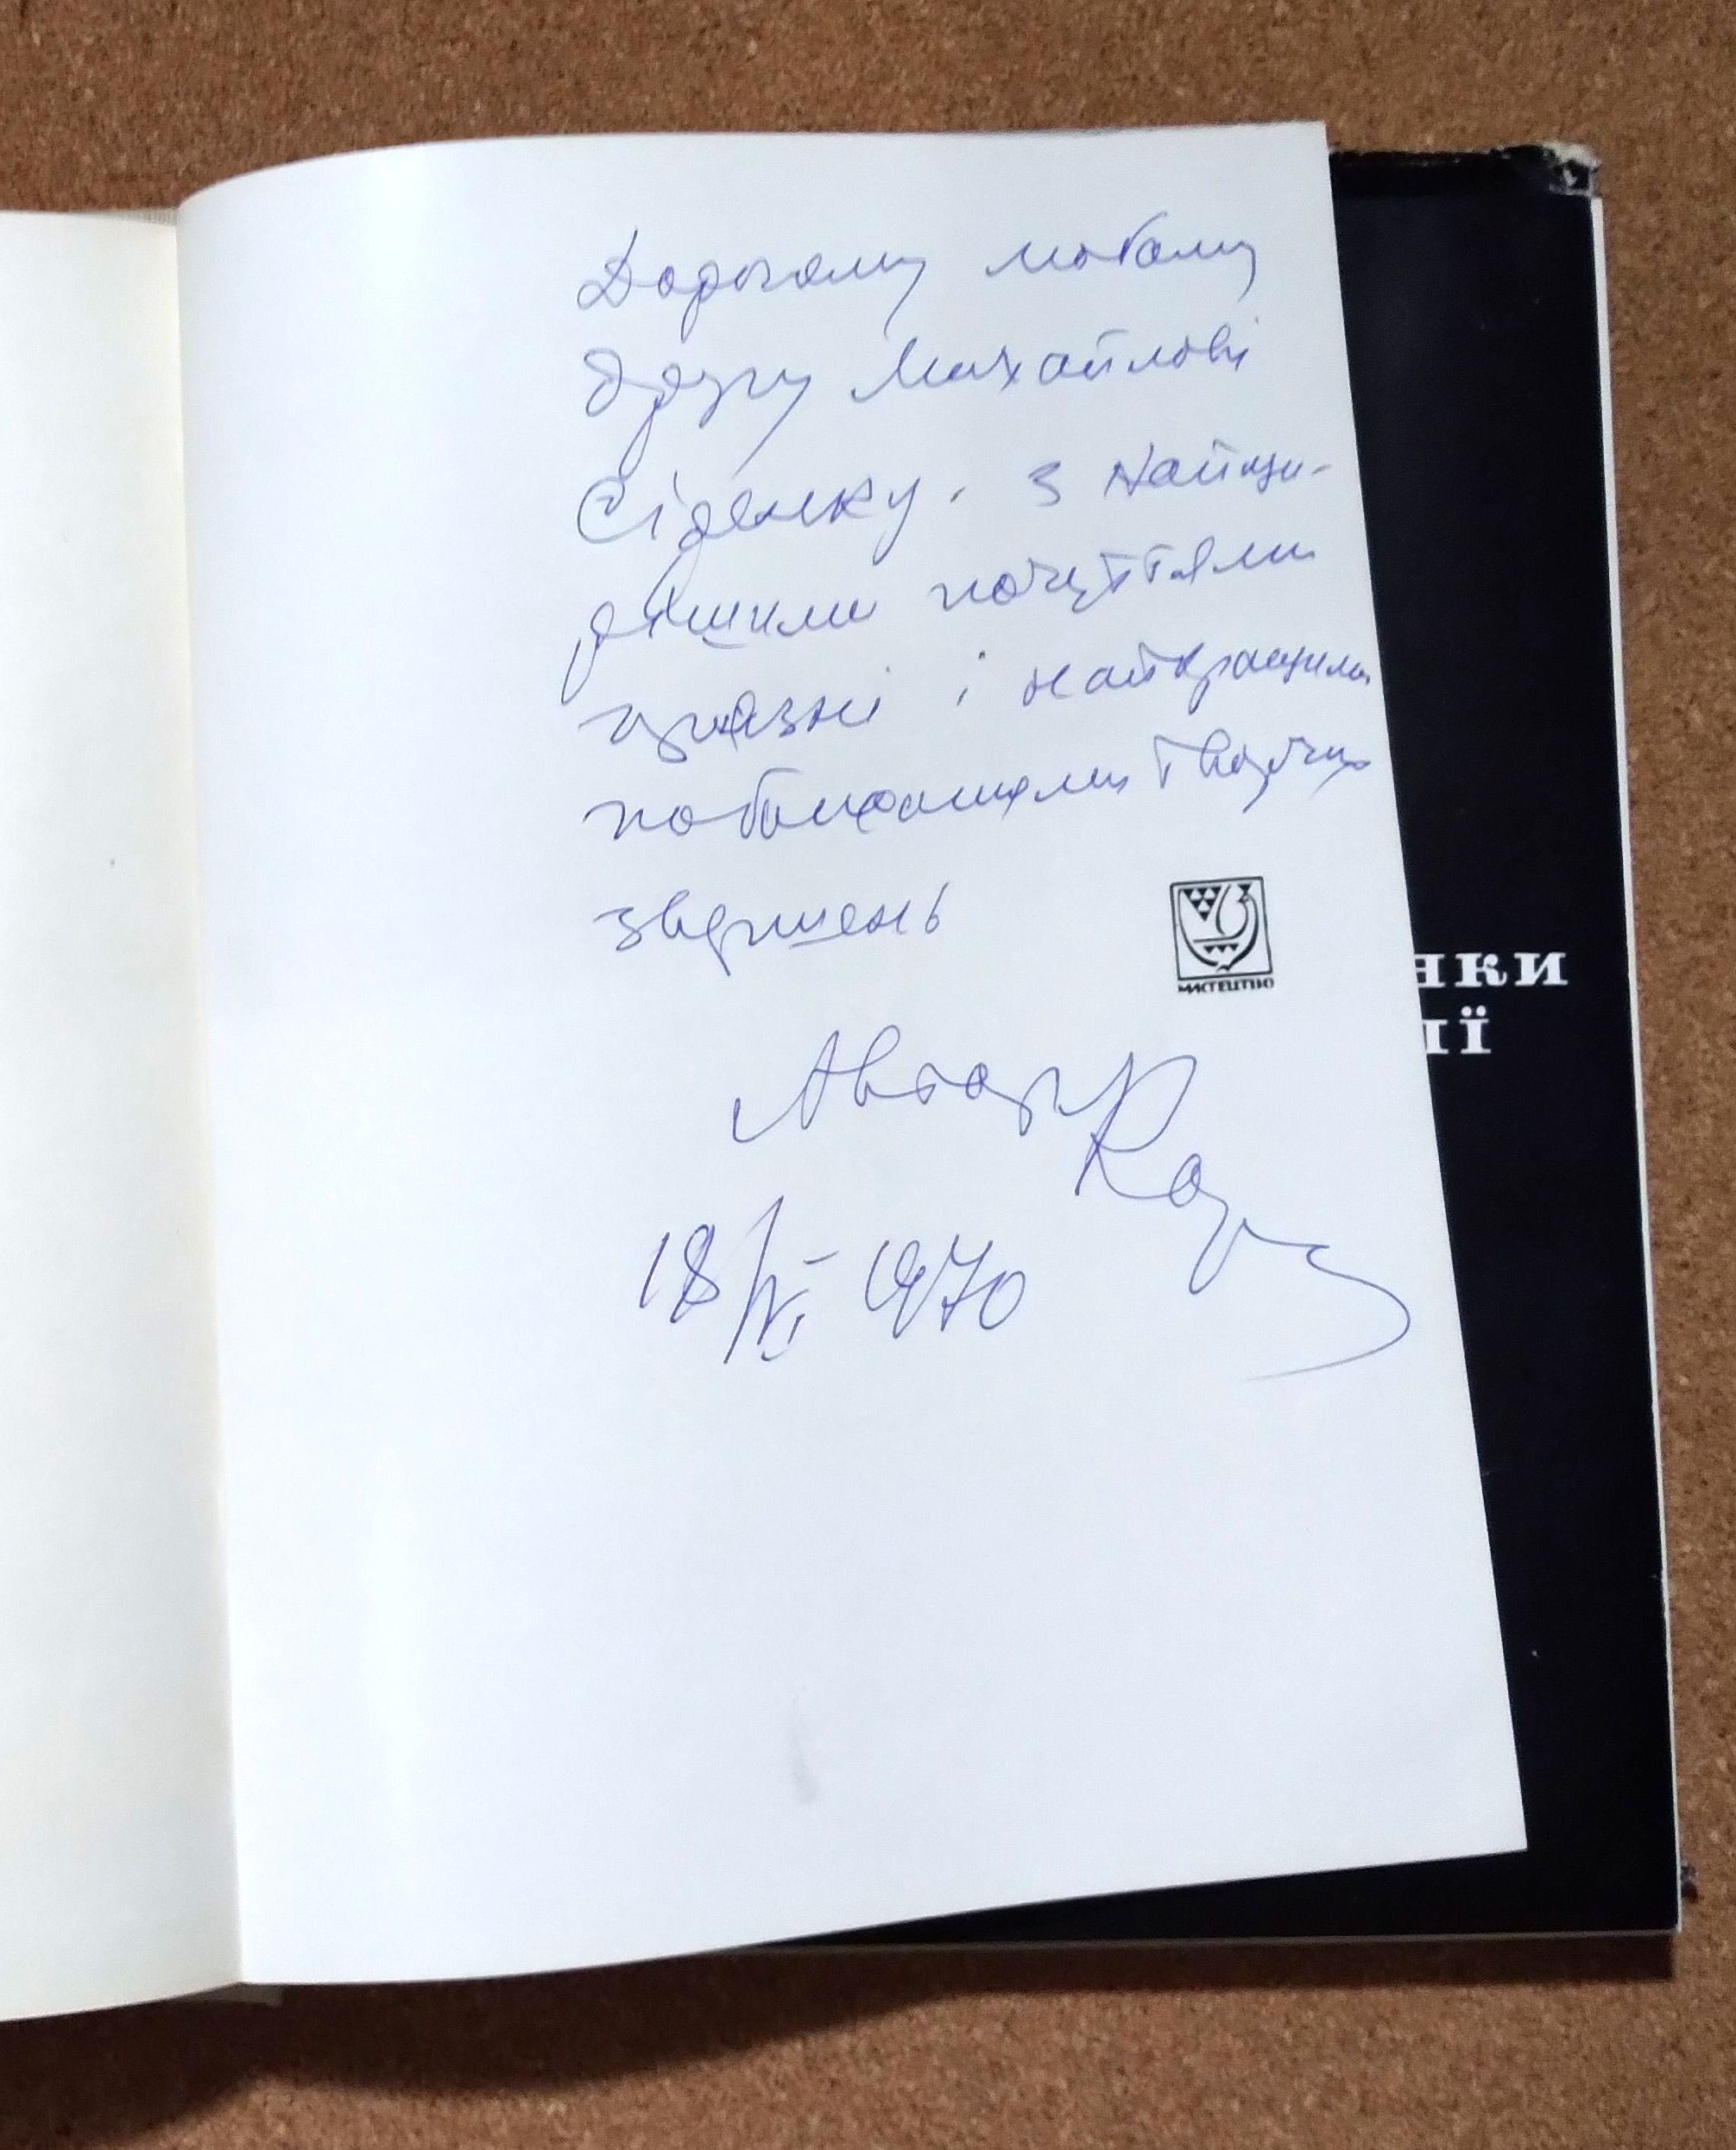 Дорогому моєму
другу Михайлові
Сіденку. З найщи-
рішими почуттями
приязні і найкращими
побажаннями творчих
звершень
МИСТЕЦТВО
НКИ
ІЇ
Автор
18/IV- 1970